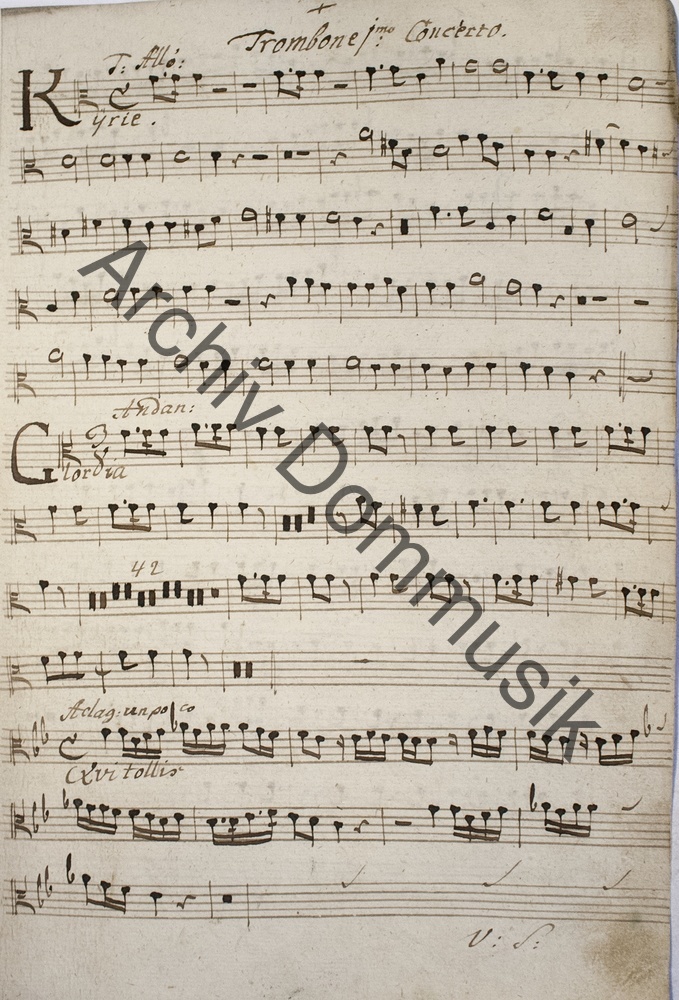 Trombone jmo: Concerto.
T: Allo:
Kyrie.
Andan:
Gloria
42
Adag: un poco
Qvi tollis
V: S:
Archiv Dommusik